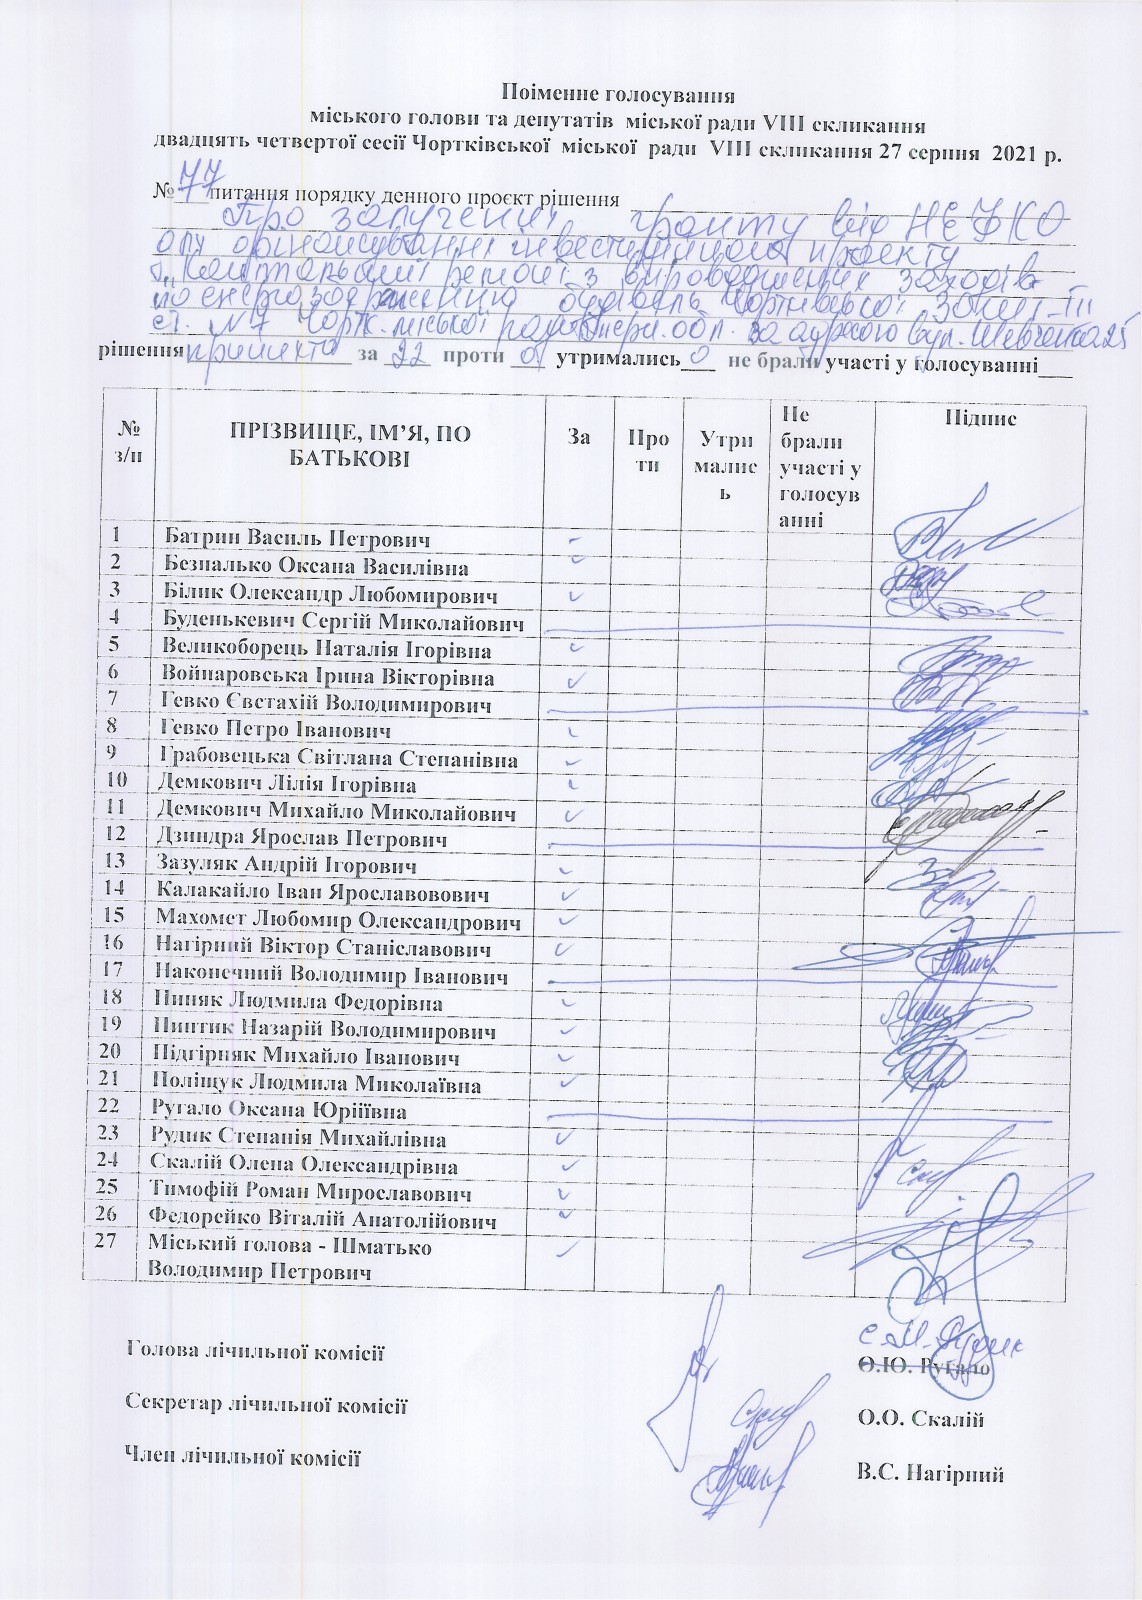 Поіменне голосування
міського голови та депутатів міської ради VIII скликання
двадцять четвертої сесії Чортківської міської ради VIII скликання 27 серпня 2021 р.
№ 77 питання порядку денного проєкт рішення
Про залучення гранту від НЕФКО
для фінансування інвестиційного проекту
"Капітальний ремонт з впровадження заходів
по енергозбереженню будівель Чортківської ЗОШ І-ІІІ
ст. №7 Чортк. міської ради Терн. обл. за адресою вул. Шевченка 25
рішення прийнято за 22 проти 0 утримались 0 не брали участі у голосуванні___
№ з/п ПРІЗВИЩЕ, ІМ’Я, ПО БАТЬКОВІ За Про ти Утри малис ь Не брали участі у голосув анні Підпис
1 Батрин Василь Петрович
2 Безпалько Оксана Василівна
3 Білик Олександр Любомирович
4 Буденькевич Сергій Миколайович
5 Великоборець Наталія Ігорівна
6 Войнаровська Ірина Вікторівна
7 Гевко Євстахій Володимирович
8 Гевко Петро Іванович
9 Грабовецька Світлана Степанівна
10 Демкович Лілія Ігорівна
11 Демкович Михайло Миколайович
12 Дзиндра Ярослав Петрович
13 Зазуляк Андрій Ігорович
14 Калакайло Іван Ярославовович
15 Махомет Любомир Олександрович
16 Нагірний Віктор Станіславович
17 Наконечний Володимир Іванович
18 Пиняк Людмила Федорівна
19 Пинтик Назарій Володимирович
20 Підгірняк Михайло Іванович
21 Поліщук Людмила Миколаївна
22 Ругало Оксана Юріїївна
23 Рудик Степанія Михайлівна
24 Скалій Олена Олександрівна
25 Тимофій Роман Мирославович
26 Федорейко Віталій Анатолійович
27 Міський голова - Шматько
Володимир Петрович
С.М. Рудик
Голова лічильної комісії О.Ю. Ругало
Секретар лічильної комісії О.О. Скалій
Член лічильної комісії В.С. Нагірний